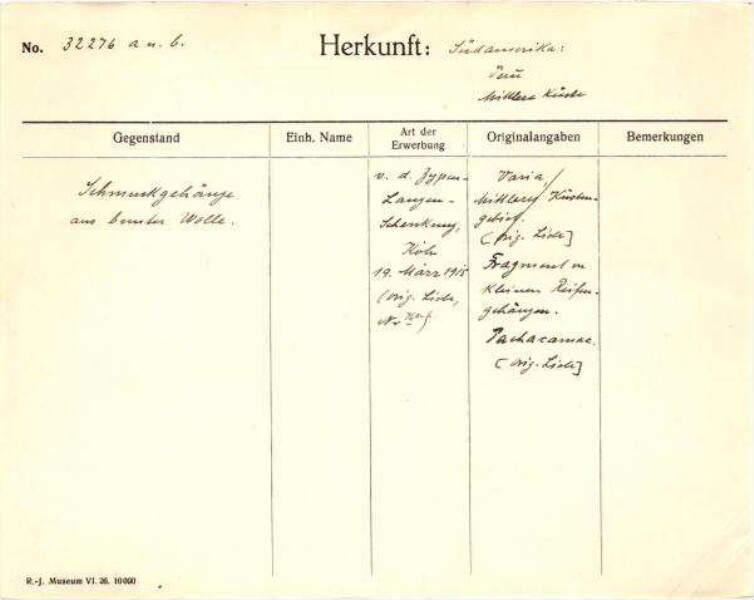 No. 32276 a u. b.
Herkunft: Südamerika:
Peru
Mittlere Küste
Gegenstand
Einh. Name
Art der
Erwerbung
Originalangaben
Bemerkungen
Schmuckgehänge
aus bunter Wolle.
v. d. Zypen-
Langen-
Schenkung,
Köln
19. März 1915
(orig. Liste,
No
Varia,
Mittlere Küsten-
gebiet.
(orig. Liste]
Fragment v.
kleinen Reifen-
gehängen.
Pachacamac.
(orig. Liste]
R.-J. Museum VI. 26. 10000